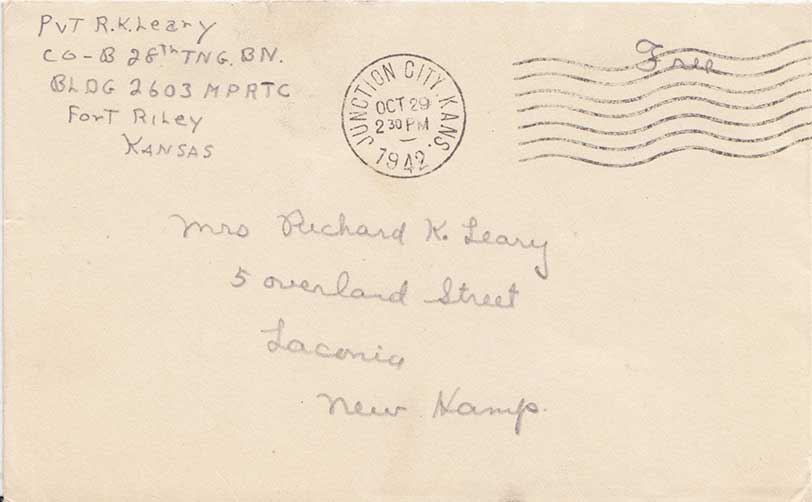 PVT R.K. Leary
CO-B 28th TNG. BN.
BLDG 2603 MPRTC
Fort Riley
Kansas
JUNCTION CITY, KANS.
OCT 29
2 30 PM
1942
Free
Mrs Richard K. Leary
5 overland Street
Laconia
New Hamp.